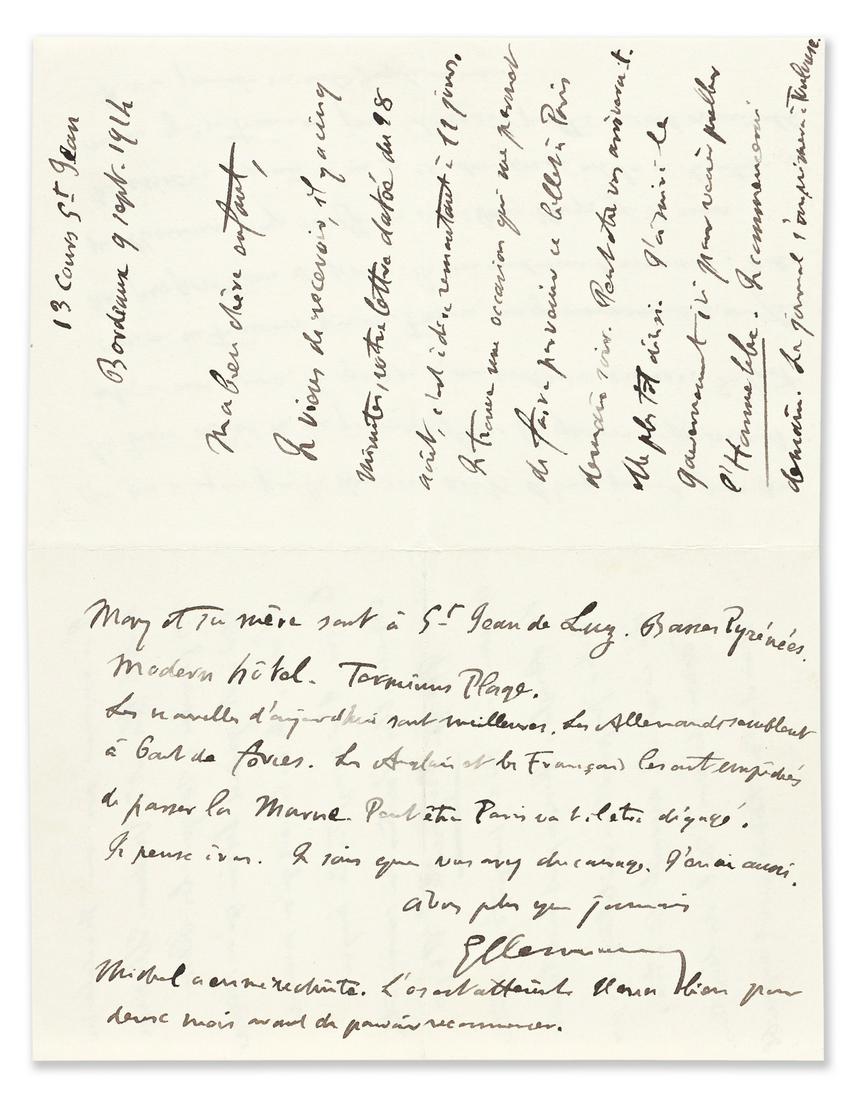 13 cours St Jean
Bordeaux 9 sept. 1914
Ma bien chère enfant,
Je viens de recevoir, il y a cinq
minutes, votre lettre datée du 28
août, c'est à dire remontant à 12 jours.
Je trouve une occasion qui me permet
de faire parvenir ce billet à Paris
demain soir. Peut être vous arrivera-t-
elle plus tôt ainsi. J'ai suivi le
gouvernement ici pour venir publier
l'Homme libre. Je commencerai
demain. Le journal s'imprimera à Toulouse.
Mary et sa mère sont à St Jean de Luz. Basses Pyrénées.
Modern hôtel. Terminus Plage.
Les nouvelles d'aujourd'hui sont meilleures. Les Allemands semblent
à bout de forces. Les Anglais et les Français les ont empêchés
de passer la Marne. Peut être Paris va t il être dégagé.
Je pense à vous. Je sais que vous avez du courage. J'en ai aussi.
à vous plus que jamais
GClemenceau
Michel a eu une rechute. L'os est atteint. Il en a bien pour
deux mois avant de pouvoir recommencer.